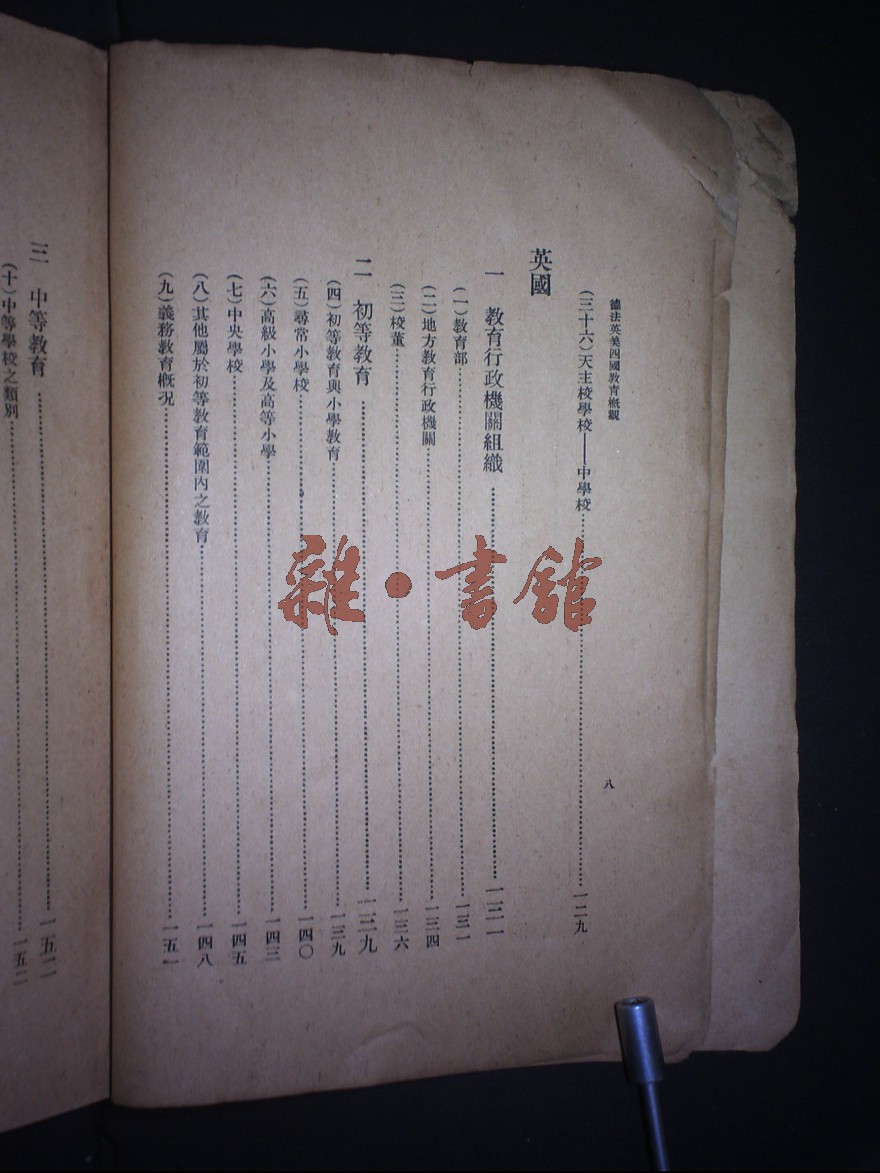 德法英美四國教育概觀
八
(三十六)天主校學校——中學校……一二九
英國
一 教育行政機關組織……一三一
(一)教育部……一三一
(二)地方教育行政機關……一三四
(三)校董……一三六
二 初等教育……一三九
(四)初等教育與小學教育……一三九
(五)尋常小學校……一四〇
(六)高級小學及高等小學……一四三
(七)中央學校……一四五
(八)其他屬於初等教育範圍內之教育……一四八
(九)義務教育概況……一五一
三 中等教育……一五二
(十)中等學校之類別……一五二
雜·書館